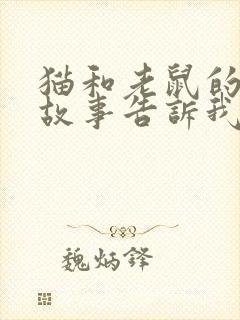 猫和老鼠的
故事告訴我
魏炳鋒